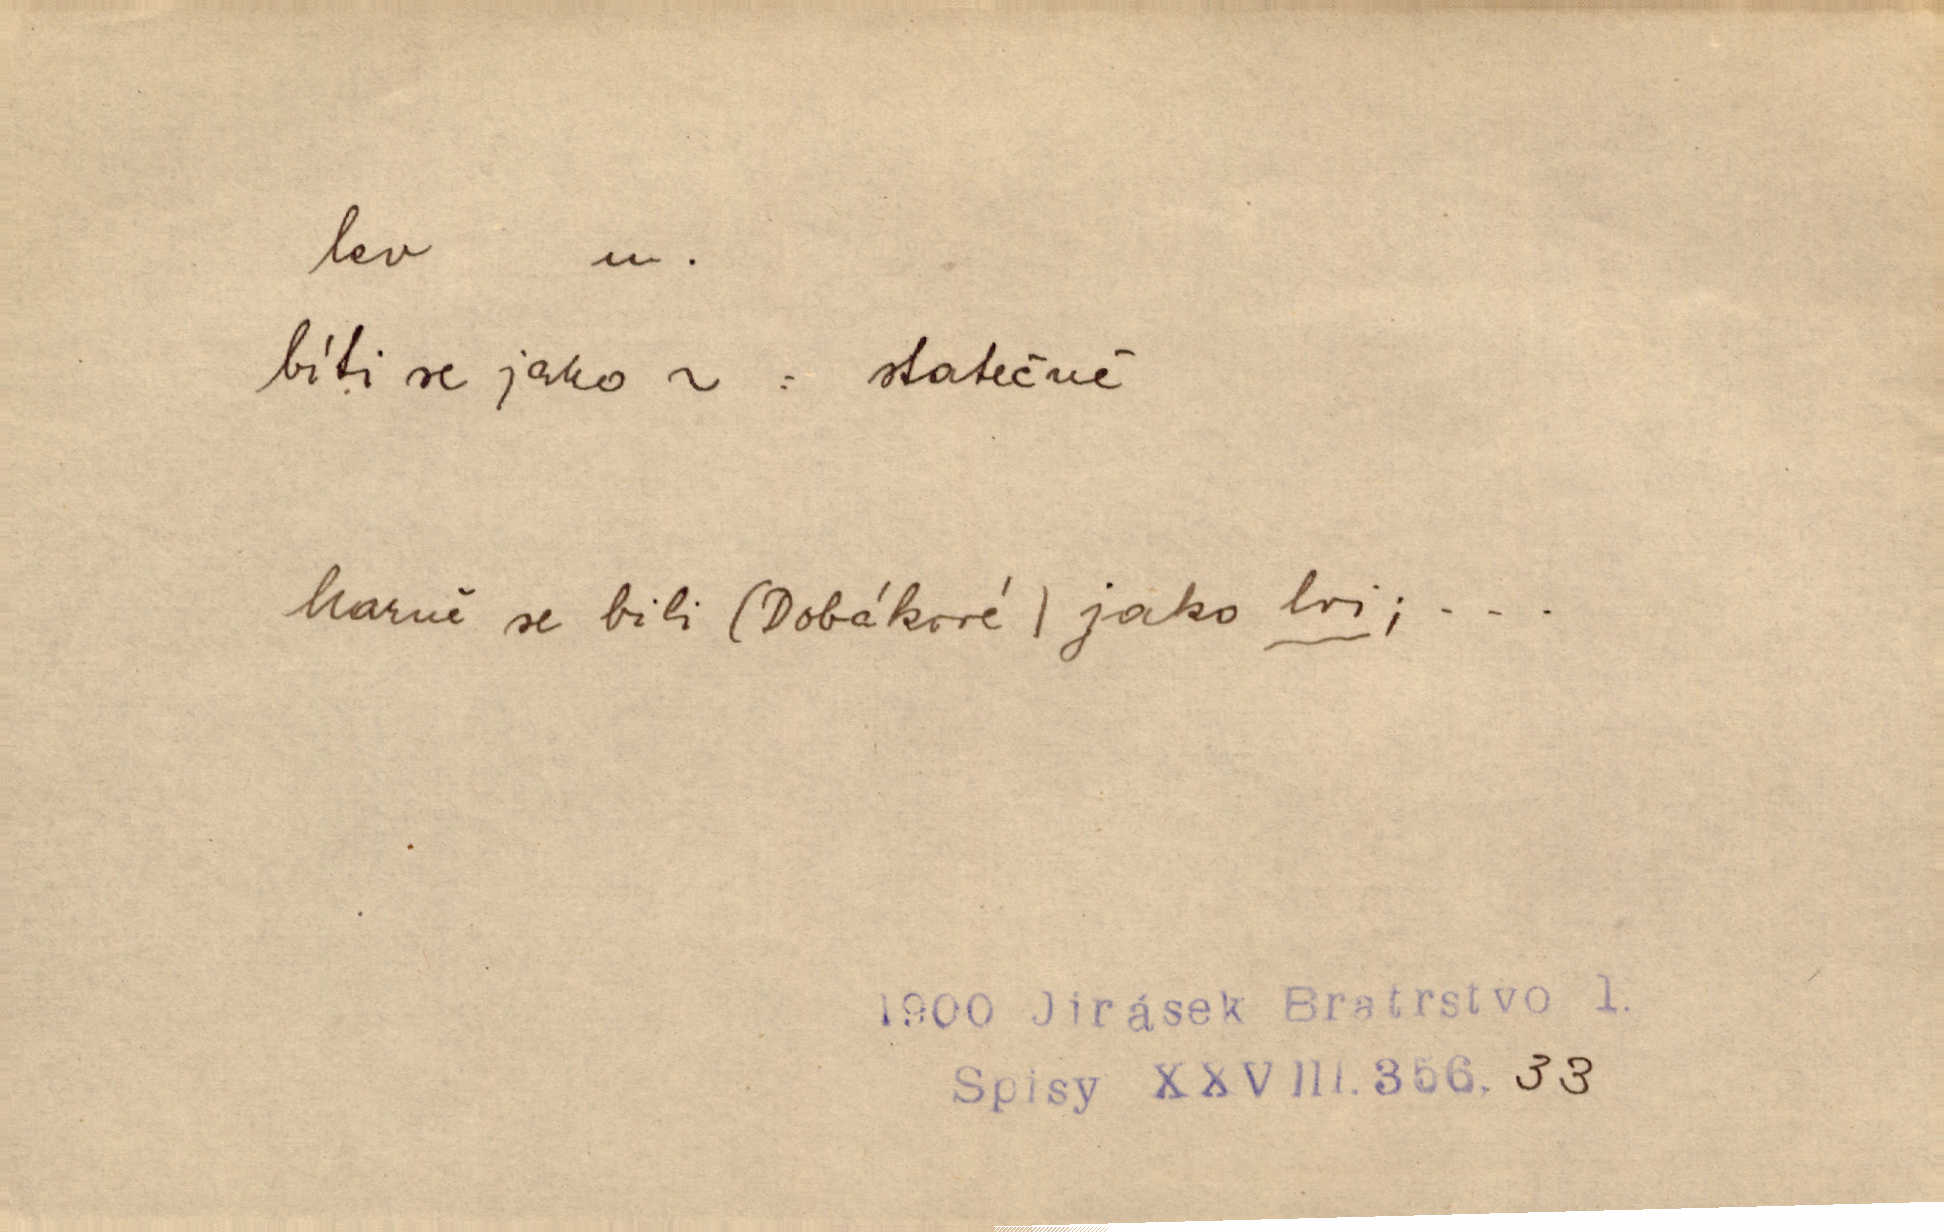 lev m.
bíti se jako ~ : statečně
harně se bili (Dobákové) jako lvi; - - -
1900 Jirásek Bratrstvo 1.
Spisy XXVIII. 356. 33